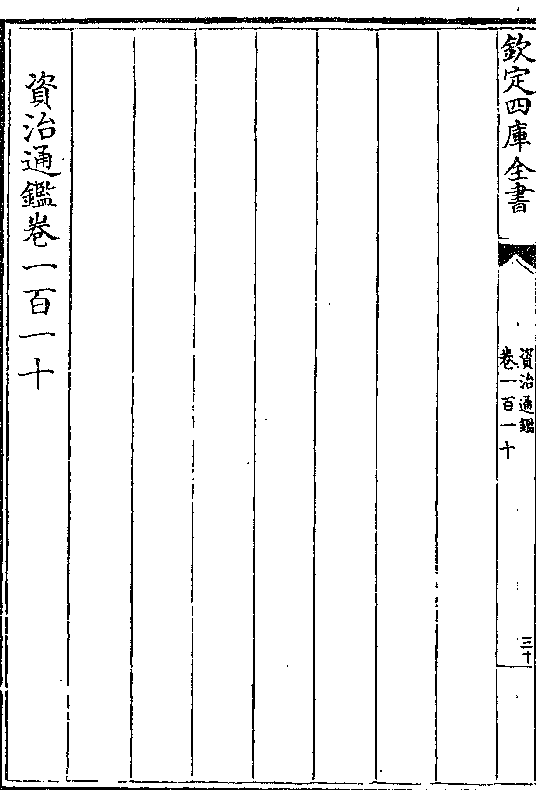 欽定四庫全書
資治通鑑
卷一百一十
三十
資治通鑑卷一百一十